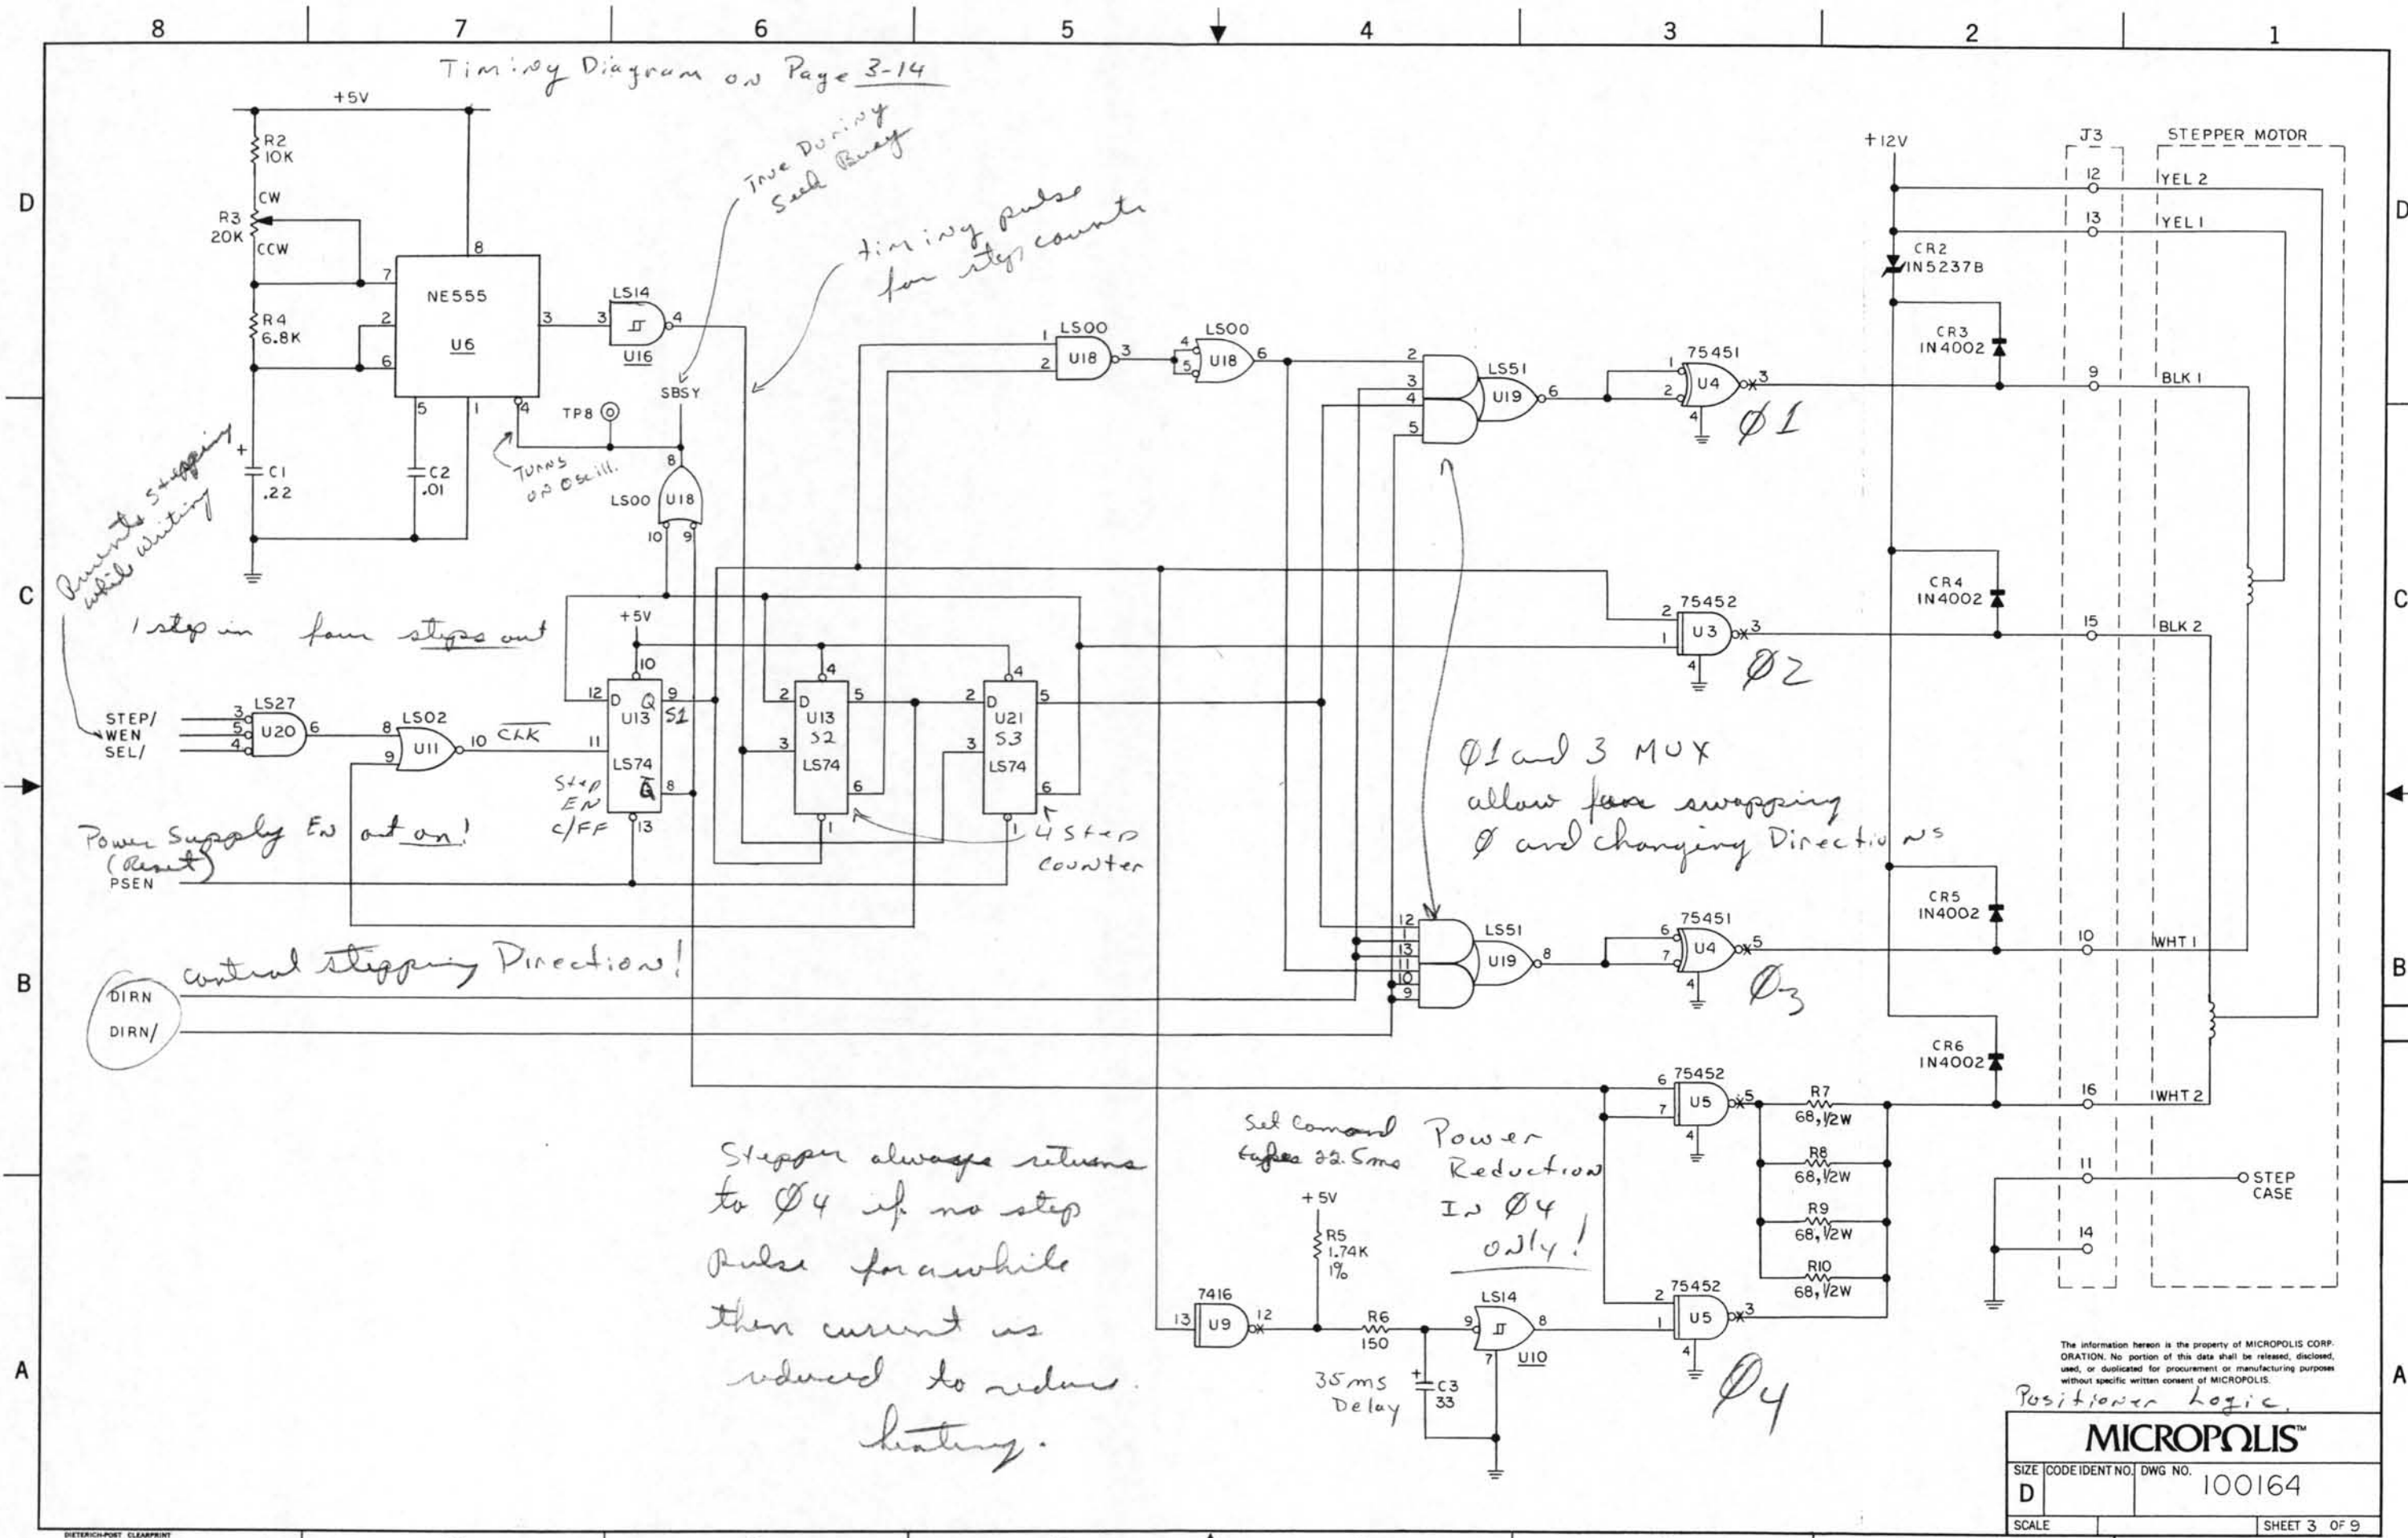 8 7 6 5 4 3 2 1
Timing Diagram on Page 3-14
+5V
R2
10K
CW
R3
20K
CCW
R4
6.8K
7
2
6
8
NE555
U6
3
5
1
4
C1
.22
+
C2
.01
LS14
3
4
U16
True During
Seek Busy
timing pulse
for step counts
SBSY
TP8
Turns
on Oscill.
8
LS00
U18
10
9
Prevents Stepping
while writing
1 step in four steps out
STEP/
WEN
SEL/
3
5
4
LS27
U20
6
8
9
LS02
U11
10
CLK
11
+5V
10
12
D
Q
9
U13
S1
LS74
Q
8
13
Step
EN
C/FF
4
2
D
5
U13
S2
3
LS74
6
1
4
2
D
5
U21
S3
3
LS74
6
1
4 Step
Counter
Power Supply EN out on!
(Reset)
PSEN
control stepping Direction!
DIRN
DIRN/
1
2
LS00
U18
3
4
5
LS00
U18
6
2
3
4
5
LS51
U19
6
75451
1
2
U4
3
4
Ø1
75452
2
1
U3
3
4
Ø2
Ø1 and 3 MUX
allow for swapping
Ø and changing Directions
12
1
13
11
10
9
LS51
U19
8
75451
6
7
U4
5
4
Ø3
75452
6
7
U5
5
4
R7
68,1/2W
R8
68,1/2W
R9
68,1/2W
R10
68,1/2W
75452
2
1
U5
3
4
Ø4
Stepper always returns
to Ø4 if no step
pulse for awhile
then current is
reduced to reduce
heating.
22.5ms
Power
Reduction
In Ø4
only!
+5V
R5
1.74K
1%
7416
13
U9
12
R6
150
35ms
Delay
+
C3
33
LS14
9
8
7
U10
+12V
CR2
1N5237B
CR3
1N4002
CR4
1N4002
CR5
1N4002
CR6
1N4002
J3
12
13
9
15
10
16
11
14
STEPPER MOTOR
YEL 2
YEL 1
BLK 1
BLK 2
WHT 1
WHT 2
STEP
CASE
D
C
B
A
D
C
B
A
The information hereon is the property of MICROPOLIS CORP-
ORATION. No portion of this data shall be released, disclosed,
used, or duplicated for procurement or manufacturing purposes
without specific written consent of MICROPOLIS.
Positioner Logic.
MICROPOLIS™
SIZE CODE IDENT NO. DWG NO.
D 100164
SCALE SHEET 3 OF 9
DIETERICH-POST CLEARPRINT